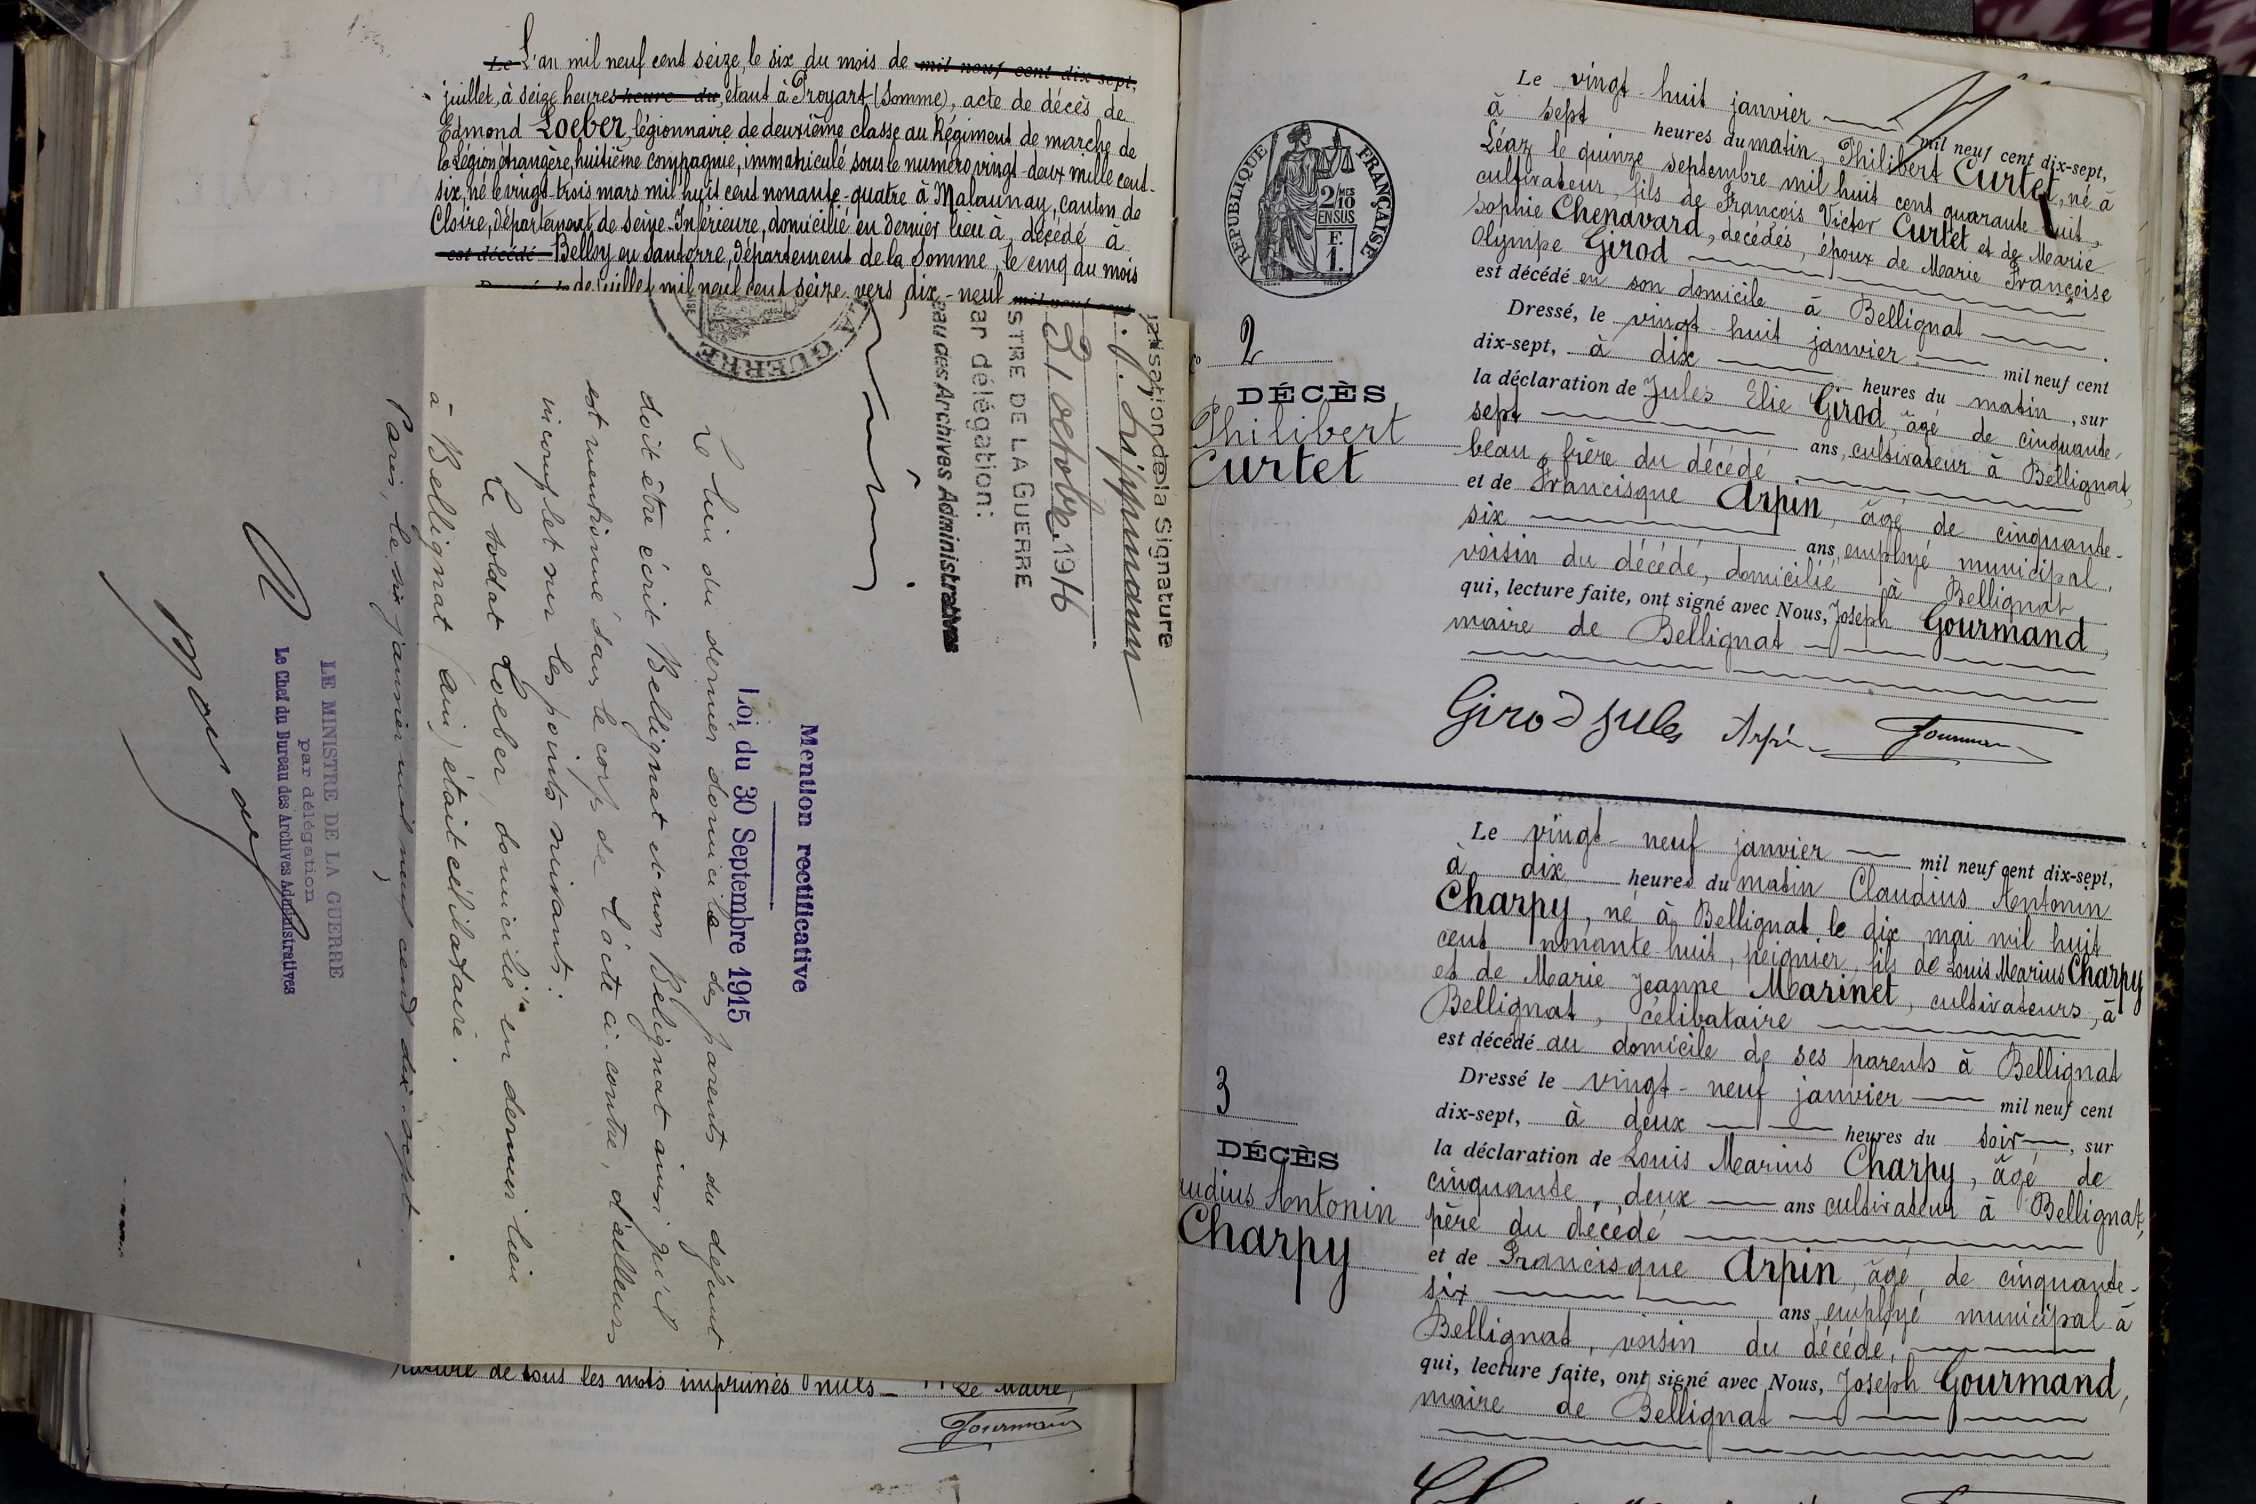 Le L'an mil neuf cent seize, le six du mois de mil neuf cent dix-sept,
juillet, à seize heures heure du, étant à Proyart (Somme), acte de décès de
Edmond Loeber, légionnaire de deuxième classe au Régiment de marche de
la Légion étrangère, huitième compagnie, immatriculé sous le numéro vingt-deux mille cent-
six, né le vingt-trois mars mil huit cent nonante-quatre à Malaunay, canton de
Cloire, département de Seine-Inférieure, domicilié en dernier lieu à, décédé à
est décédé Belloy en Santerre, département de la Somme, le cinq du mois
de juillet mil neuf cent seize vers dix-neuf
rature de tous les mots imprimés nuls — Le Maire,
Gourmand
la Signature
Lippmann
31 octobre 1916
STRE DE LA GUERRE
ar délégation:
eau des Archives Administratives
LA GUERRE
Mention rectificative
Loi du 30 Septembre 1915
Le lieu du dernier domicile des parents du défunt
doit être écrit Bellignat et non Béligniat ainsi qu'il
est mentionné dans le corps de l'acte ci-contre, d'ailleurs
incomplet sur les points suivants:
Le soldat Loeber, domicilié en dernier lieu
à Bellignat (Ain) était célibataire.
Paris, le six janvier mil neuf cent dix-sept.
LE MINISTRE DE LA GUERRE
par délégation
Le Chef du Bureau des Archives Administratives
REPUBLIQUE FRANÇAISE
2/10 MES
EN SUS
F.
1.
2
DÉCÈS
Philibert
Curtet
Le vingt-huit janvier mil neuf cent dix-sept,
à sept heures du matin, Philibert Curtet, né à
Léaz le quinze septembre mil huit cent quarante huit,
cultivateur, fils de François Victor Curtet et de Marie
Sophie Chenavard, décédés, époux de Marie Françoise
Olympe Girod
est décédé en son domicile à Bellignat
Dressé, le vingt-huit janvier mil neuf cent
dix-sept, à dix heures du matin, sur
la déclaration de Jules Elie Girod, âgé de cinquante-
sept ans, cultivateur à Bellignat,
beau-frère du décédé
et de Francisque Arpin, âgé de cinquante-
six ans, employé municipal,
voisin du décédé, domicilié à Bellignat
qui, lecture faite, ont signé avec Nous, Joseph Gourmand,
maire de Bellignat
Girod Jules Arpin Gourmand
3
DÉCÈS
udius Antonin
Charpy
Le vingt-neuf janvier mil neuf cent dix-sept,
à dix heures du matin Claudius Antonin
Charpy, né à Bellignat le dix mai mil huit
cent nonante huit, peignier, fils de Louis Marius Charpy
et de Marie Jeanne Marinet, cultivateurs, à
Bellignat, célibataire
est décédé au domicile de ses parents à Bellignat
Dressé le vingt-neuf janvier mil neuf cent
dix-sept, à deux heures du soir, sur
la déclaration de Louis Marius Charpy, âgé de
cinquante-deux ans cultivateur à Bellignat,
père du décédé
et de Francisque Arpin, âgé de cinquante-
six ans, employé municipal à
Bellignat, voisin du décédé,
qui, lecture faite, ont signé avec Nous, Joseph Gourmand,
maire de Bellignat